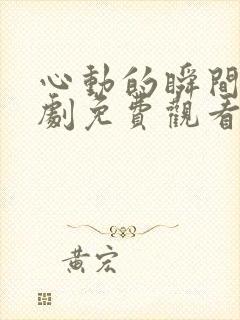 心動的瞬間
劇免費觀看
黃宏